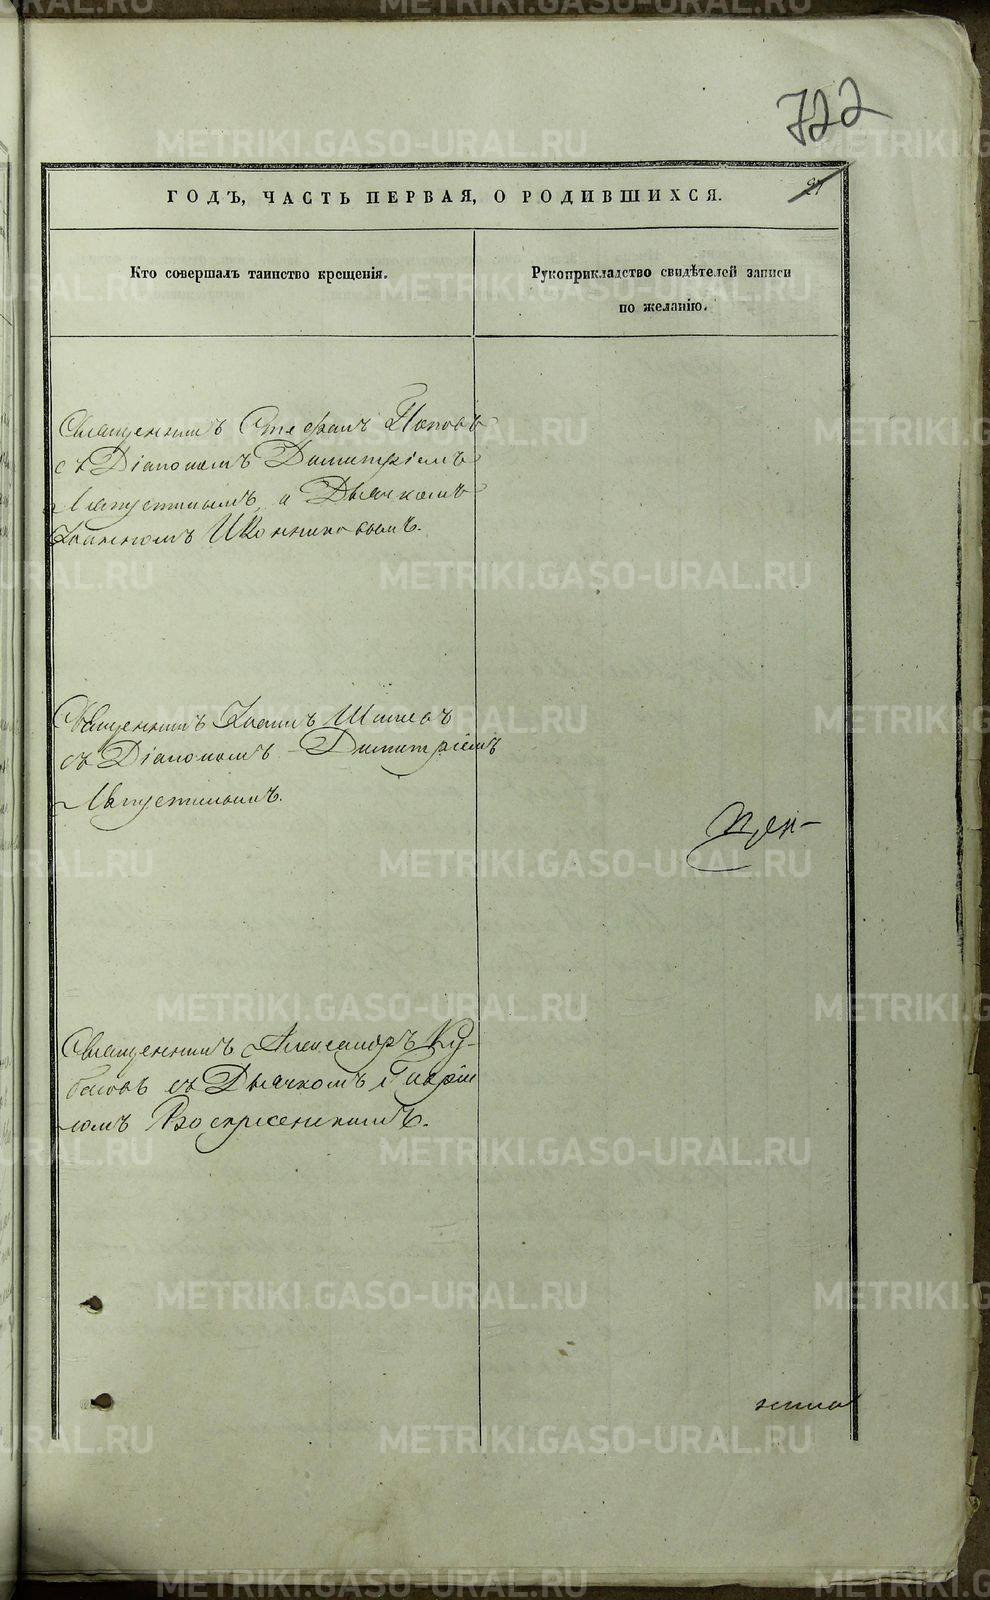 722
21
ГОДЪ, ЧАСТЬ ПЕРВАЯ, О РОДИВШИХСЯ.
Кто совершалъ таинство крещенія.
Рукоприкладство свидѣтелей записи
по желанію.
Священникъ Стефанъ Поповъ
съ Діакономъ Димитріемъ
и Дьячкомъ
Іоанномъ Иконниковымъ.
Священникъ Іоаннъ
съ Діакономъ Димитріемъ
Священникъ Александръ Ку-
съ Дьячкомъ Гавріи
ломъ Воскресенскимъ.
METRIKI.GASO-URAL.RU